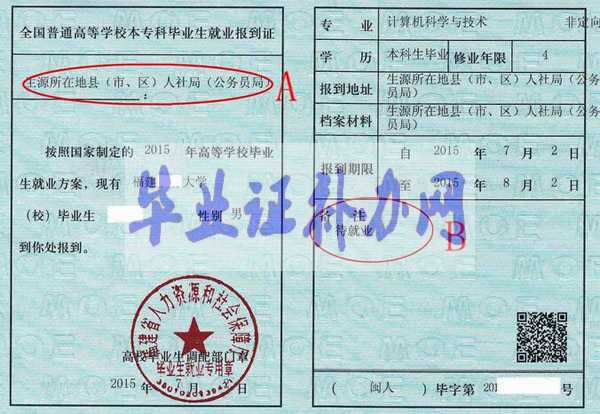 全国普通高等学校本专科毕业生就业报到证
生源所在地县（市、区）人社局（公务员局）
：
A
按照国家制定的 2015 年高等学校毕业
生就业方案，现有 福建 大学
（校）毕业生 性别 男
到你处报到。
福建省人力资源和社会保障厅
高校毕业生调配部门章
毕业生就业专用章
2015 年 7 月
专 业 计算机科学与技术 非定向
学 历 本科生毕业 修业年限 4
报到地址 生源所在地县（市、区）人社局（公务
员局）
档案材料 生源所在地县（市、区）人社局（公务
员局）
报到期限 自 2015 年 7 月 2 日
至 2015 年 8 月 2 日
备 注
待就业
B
（ 闽人 ）毕字第 201 号
毕业证补办网